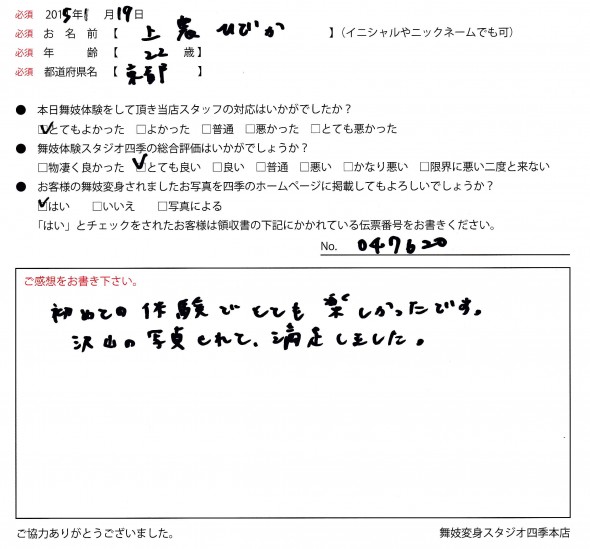 必須 2015年1月19日
必須 お 名 前 【 上 ひびか 】(イニシャルやニックネームでも可)
必須 年 齢 【 22 歳】
必須 都道府県名 【 京都 】
● 本日舞妓体験をして頂き当店スタッフの対応はいかがでしたか?
☑とてもよかった □よかった □普通 □悪かった □とても悪かった
● 舞妓体験スタジオ四季の総合評価はいかがでしょうか?
□物凄く良かった ☑とても良い □良い □普通 □悪い □かなり悪い □限界に悪い二度と来ない
● お客様の舞妓変身されましたお写真を四季のホームページに掲載してもよろしいでしょうか?
☑はい □いいえ □写真による
「はい」とチェックをされたお客様は領収書の下記にかかれている伝票番号をお書きください。
No. 047620
ご感想をお書き下さい。
初めての体験でとても楽しかったです。
沢山の写真とれて、満足しました。
ご協力ありがとうございました。 舞妓変身スタジオ四季本店